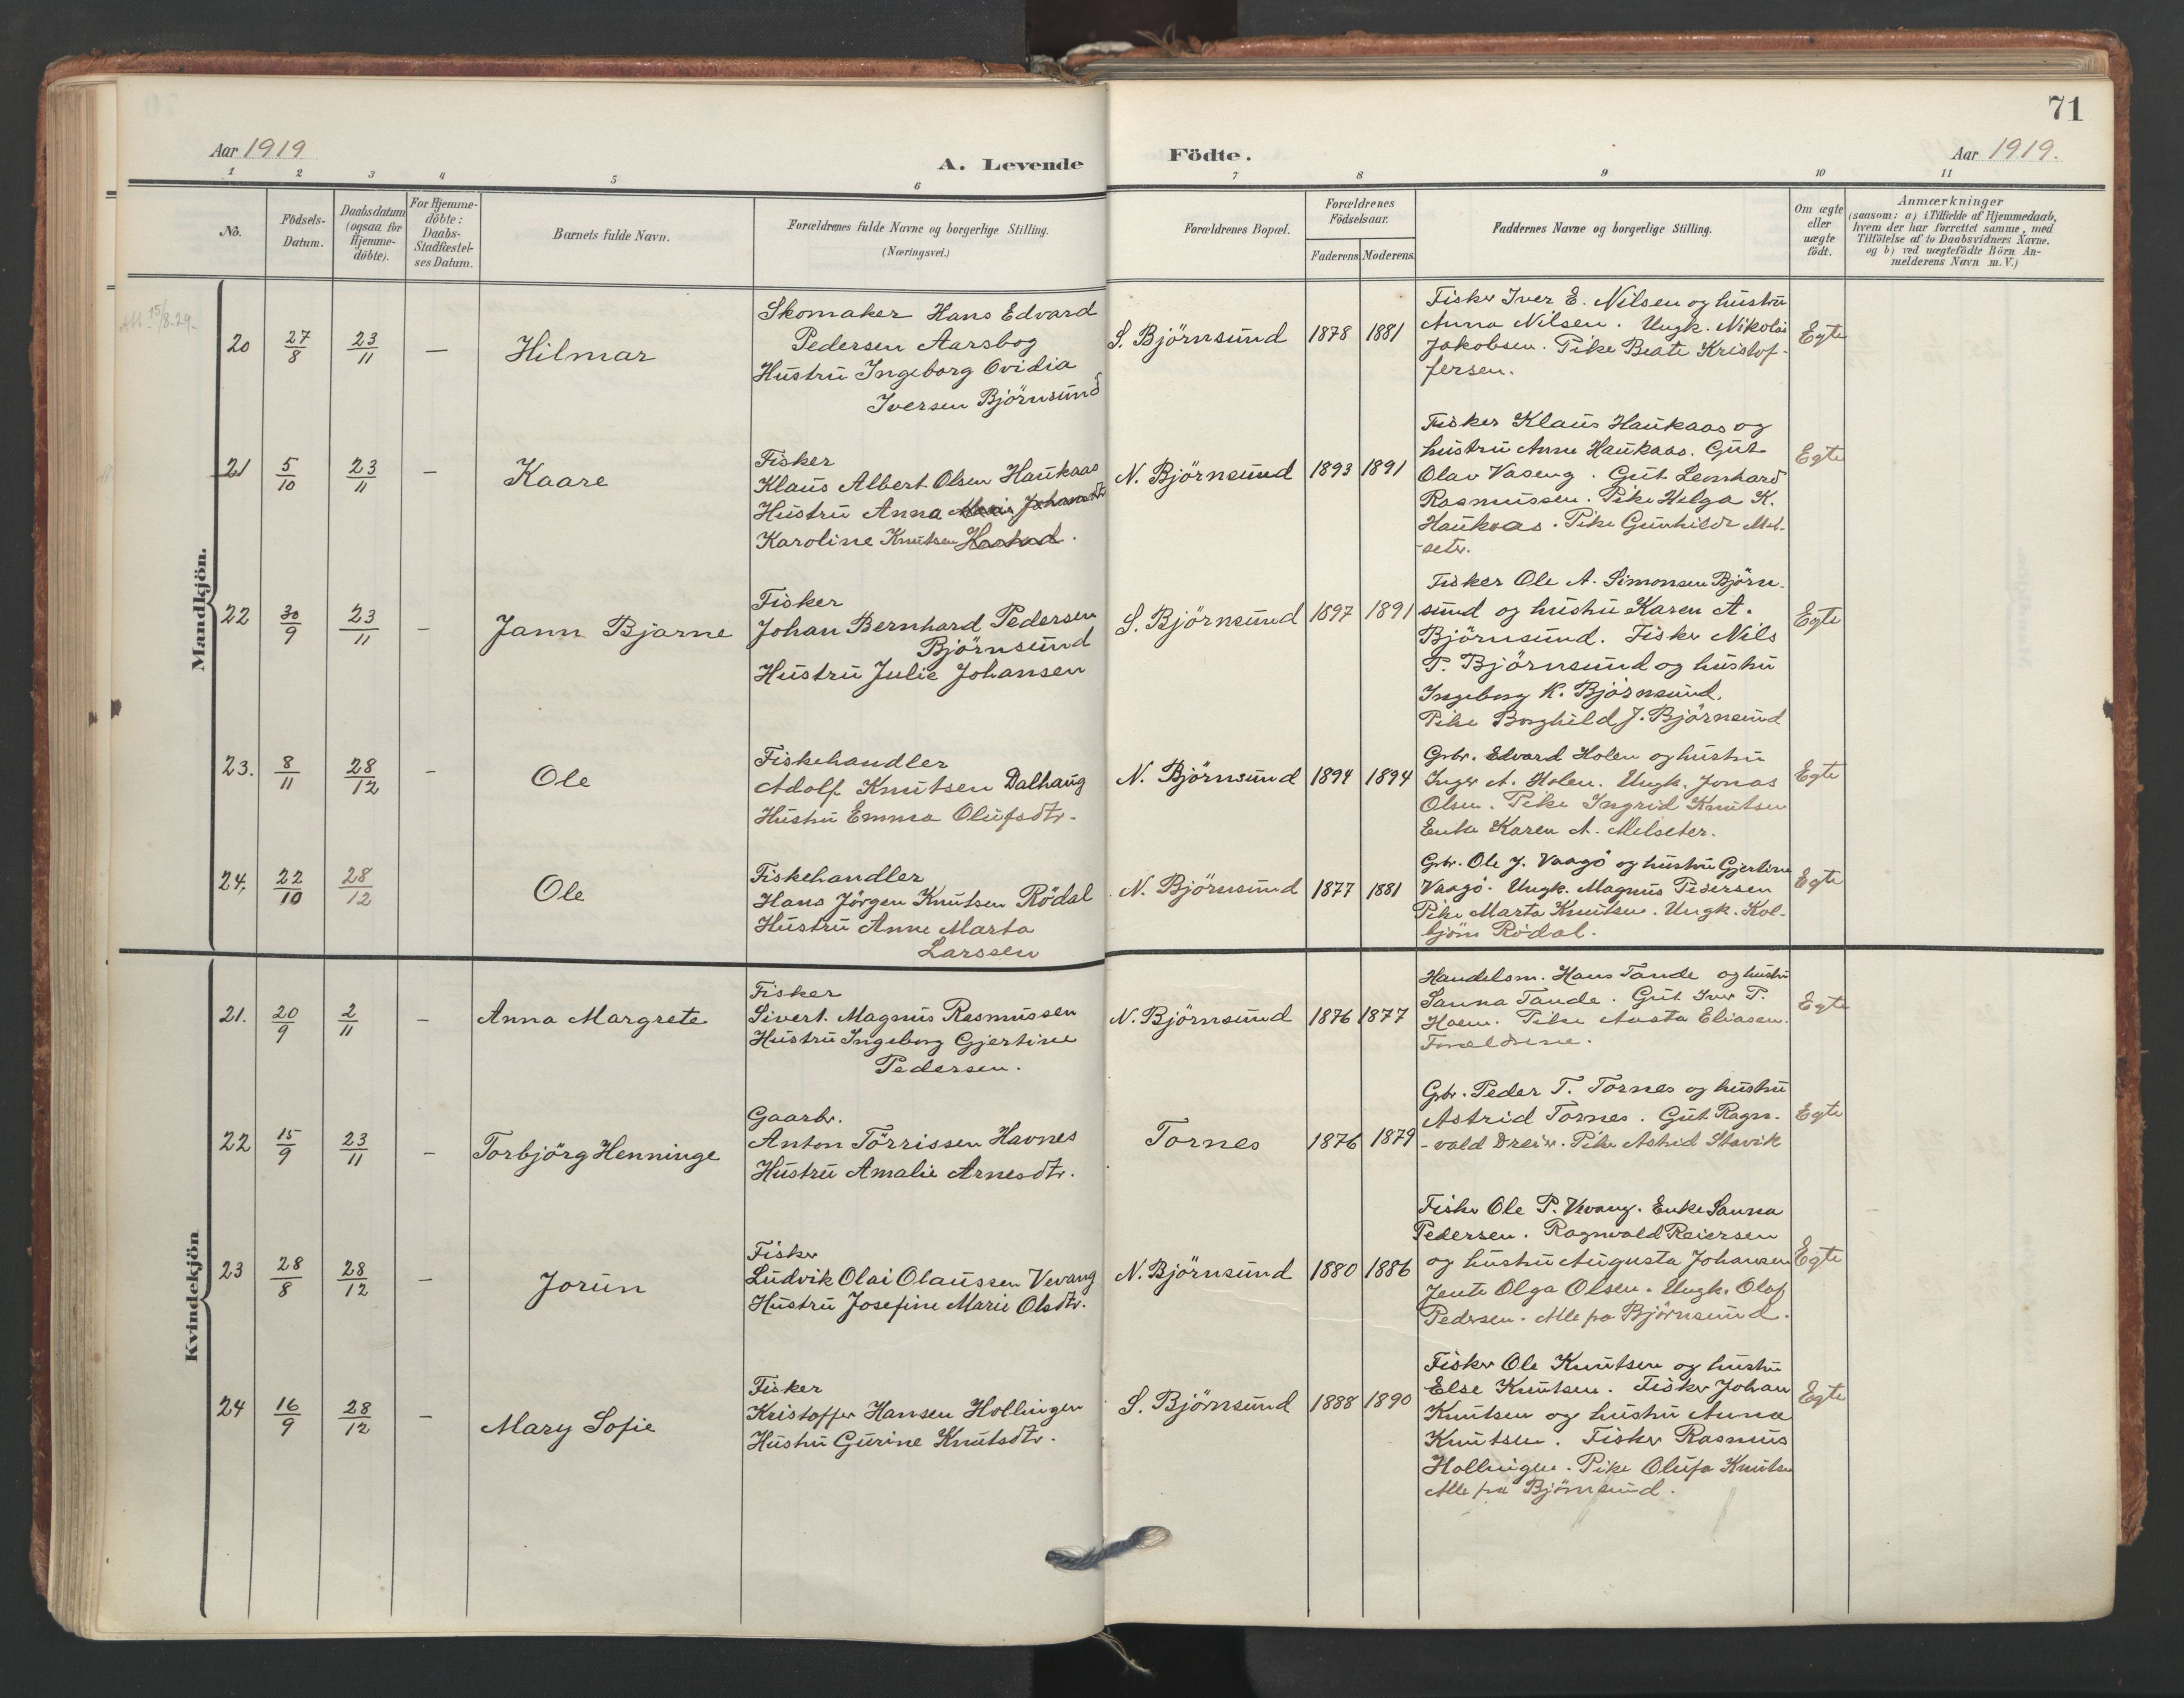 71
Aar 1919
A. Levende
Födte.
Aar 1919.
1 2 3 4 5 6 7 8 9 10 11
No.
Födsels-
Datum.
Daabsdatum
(ogsaa for
Hjemme-
döbte).
For Hjemme-
döbte:
Daabs-
Stadfæstel-
ses Datum.
Barnets fulde Navn.
Forældrenes fulde Navne og borgerlige Stilling.
(Næringsvei.)
Forældrenes Bopæl.
Forældrenes
Födselsaar.
Faderens. Moderens.
Faddernes Navne og borgerlige Stilling.
Om ægte
eller
uægte
födt.
Anmærkninger
(saasom: a) i Tilfælde af Hjemmedaab,
hvem der har forrettet samme, med
Tilföielse af to Daabsvidners Navne.
og b) ved uægtefödte Börn An-
melderens Navn m. V.)
Mandkjön.
15/8.29.
20 27/8 23/11 — Hilmar
Skomaker Hans Edvard
Pedersen Aarsbog
Hustru Ingeborg Ovidia
Iversen Björnsund
S. Björnsund 1878 1881
Fisker Iver E. Nilsen og hustru
Anna Nilsen. Ungk. Nikolai
Jakobsen. Pike Beate Kristof-
fersen.
Egte
21 5/10 23/11 — Kaare
Fisker
Klaus Albert Olsen Haukaas
Hustru Anna
Karoline Knutsen
N. Björnsund 1893 1891
Fisker Klaus Haukaas og
hustru Anne Haukaas. Gut
Olav Vaseng. Gut Leonhard
Rasmussen. Pike Helga K.
Haukaas. Pike Gunhild Mel-
-seter.
Egte
22 30/9 23/11 — Jann Bjarne
Fisker
Johan Bernhard Pedersen
Björnsund
Hustru Julie Johansen
S. Björnsund 1897 1891
Fisker Ole A. Simonsen Björn-
sund og hustru Karen A.
Björnsund. Fisker Nils
P. Björnsund og hustru
Ingeborg K. Björnsund.
Pike Borghild J. Björnsund
Egte
23. 8/11 28/12 — Ole
Fiskehandler
Adolf Knutsen Dalhaug
Hustru Emma Olufsdtr.
N. Björnsund 1894 1894
Grbr. Edvard Holen og hustru
Inger A. Holen. Ungk. Jonas
Olsen. Pike Ingrid Knutsen
Enke Karen A. Melseter.
Egte
24. 22/10 28/12 Ole
Fiskehandler
Hans Jörgen Knutsen Rödal
Hustru Anne Marta
Larssen
N. Björnsund 1877 1881
Grbr. Ole J. Vaagö og hustru Gjertine
Vaagö. Ungk. Magnus Pedersen
Pike Marta Knutsen. Ungk. Kol-
björn Rödal.
Egte
Kvindekjön
21. 20/9 2/11 — Anna Margrete
Fisker
Sivert Magnus Rasmussen
Hustru Ingeborg Gjertine
Pedersen.
N. Björnsund 1876 1877
Handelsm. Hans Tande og hustru
Sanna Tande. Gut Iver P.
Hoem. Pike Aasta Eliasen.
Forældrene.
Egte
22 15/9 23/11 — Torbjörg Henninge
Gaarbr.
Anton Törrissen Havnes
Hustru Amalie Arnesdtr.
Tornes 1876 1879
Grbr. Peder T. Tornes og hustru
Astrid Tornes. Gut Ragn-
-vald Dreier. Pike Astrid Stavik
Egte
23 28/8 28/12 — Jorun
Fisker
Ludvik Olai Olaussen Vevang
Hustru Josefine Marie Olsdtr.
N. Björnsund 1880 1886
Fisker Ole P. Vevang. Enke Sanna
Pedersen. Ragnvald Reiersen
og hustru Augusta Johansen
Jente Olga Olsen. Ungk. Olaf
Pedersen. Alle paa Björnsund.
Egte
24 16/9 28/12 — Mary Sofie
Fisker
Kristoffer Hansen Hollingen
Hustru Gurine Knutsdtr.
S. Björnsund 1888 1890
Fisker Ole Knutsen og hustru
Else Knutsen. Fisker Johan
Knutsen og hustru Anna
Knutsen. Fisker Rasmus
Hollingen. Pike Olufa Knutsen
Alle fra Björnsund.
Egte